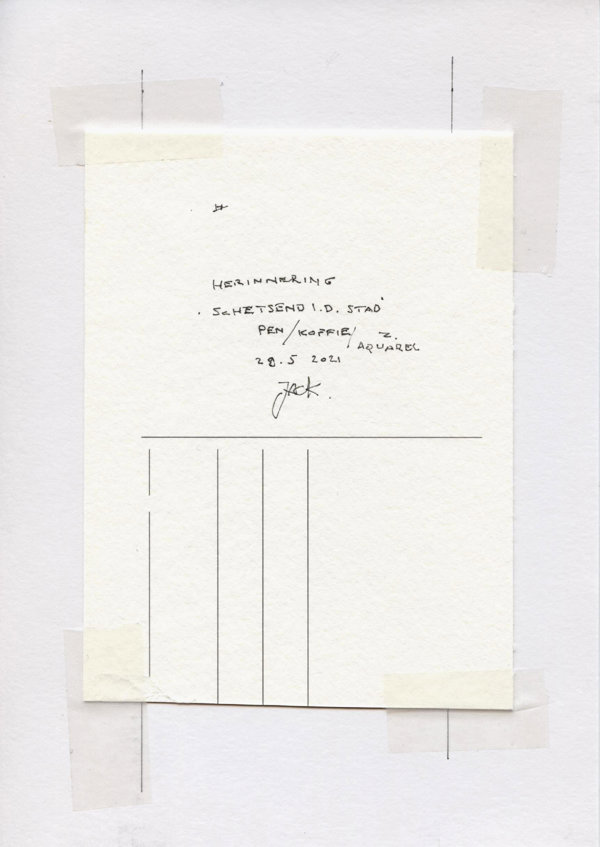 #
HERINNERING
. SCHETSEND I.D. STAD'
PEN/KOFFIE/ Z. AQUAREL
28.5 2021
JACK.